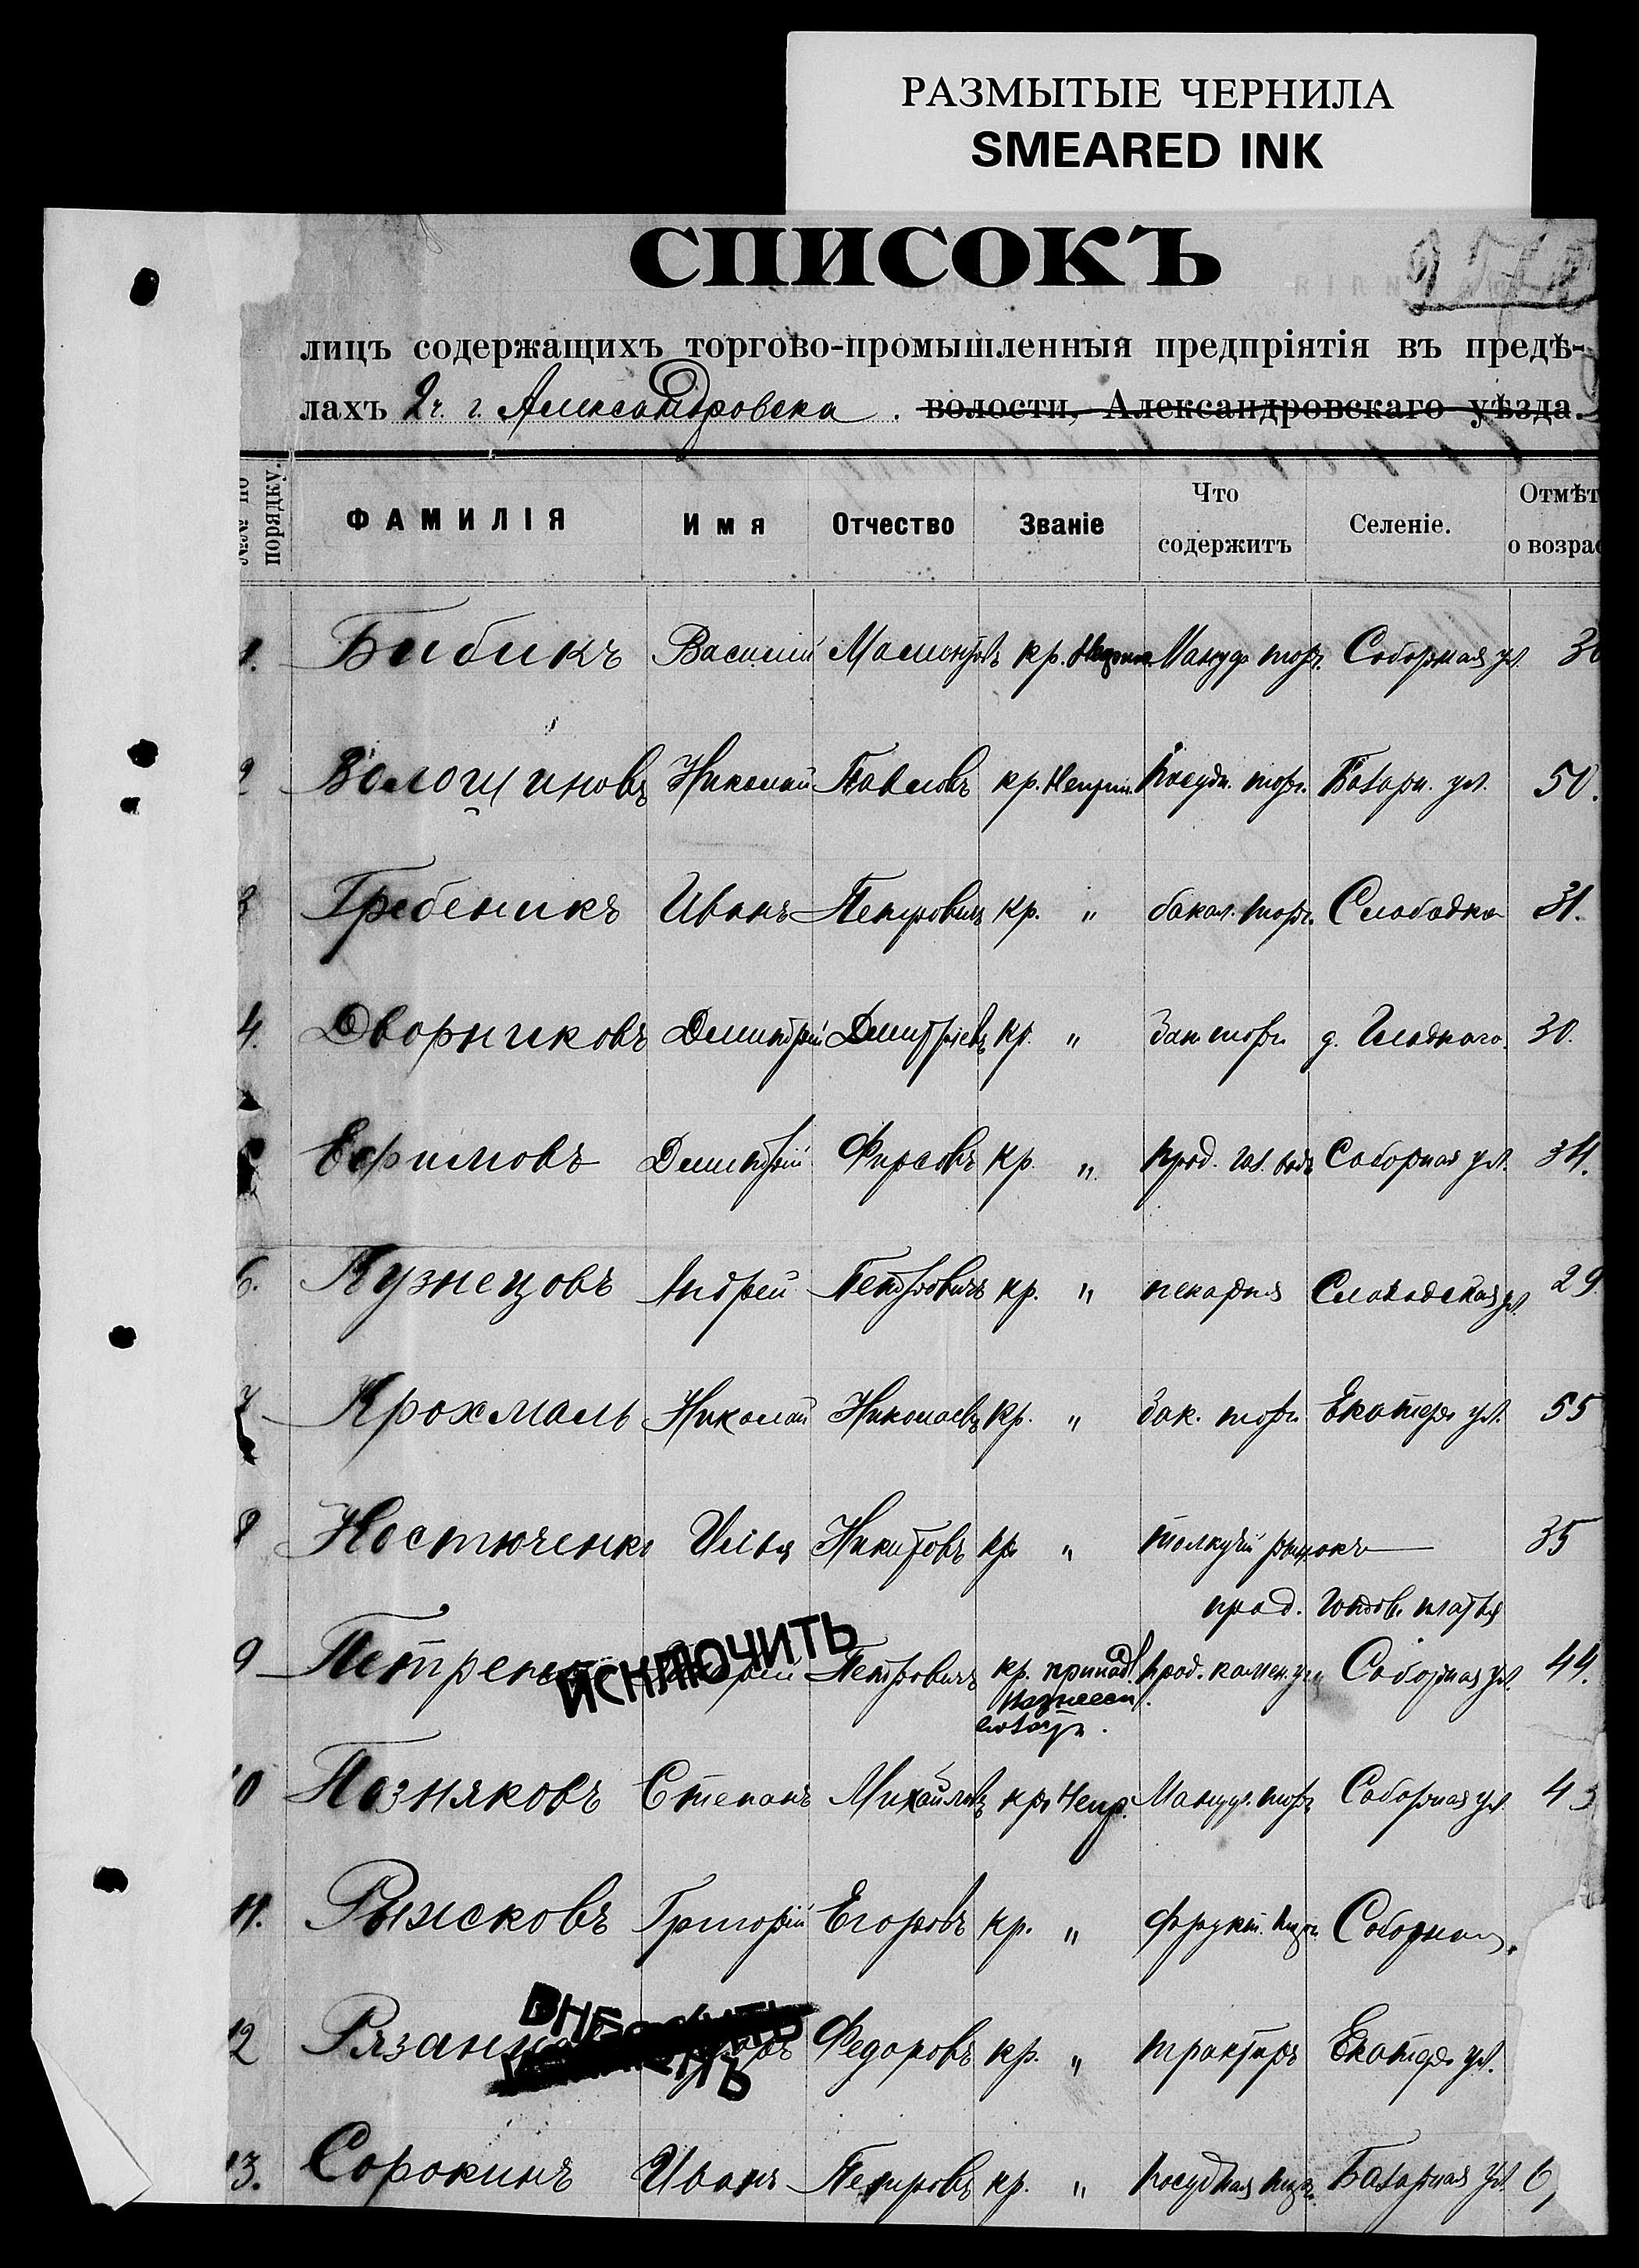 РАЗМЫТЫЕ ЧЕРНИЛА
SMEARED INK
СПИСОКЪ
лицъ содержащихъ торгово-промышленныя предпріятія въ предѣ-
лахъ 2 ч. г. Александровска . волости, Александровскаго уѣзда.
№№ по порядку. ФАМИЛІЯ Имя Отчество Званіе Что содержитъ Селеніе. Отмѣт о возрас
1. Бибикъ Василій кр. Мануф. торг. Соборная ул.
2 Волощиновъ Николай Павловъ кр. Посудн. торг. Базарн. ул. 50.
3 Гребеникъ Иванъ Петровичъ кр. " бакал. торг. Слободка 31.
4. Дворниковъ Дмитрій Дмитріевъ кр. " торг. д. 30.
Ефимовъ Дмитрій Фирсовъ кр. " прод. Соборная ул. 34.
6. Кузнецовъ Андрей Петровичъ кр. " пекарня Слободская ул. 29
7 Крохмаль Николай Николаевъ кр. " бак. торг. Екатер. ул. 55
8 Костюченко Илья Никитовъ кр. " толкучій рынокъ 35
прод. готов. платья
9 ИСКЛЮЧИТЬ Петровичъ кр. прод. камен. Соборная ул. 44.
10 Позняковъ Степанъ Михайловъ кр. Мануф. торг. Соборная ул. 43
11. Рыжковъ Григорій Егоровъ кр. " фрукт. Соборная
12 Федоровъ кр. " трактиръ Екатер. ул.
13. Сорокинъ Иванъ Петровъ кр. " посудная Базарная ул.